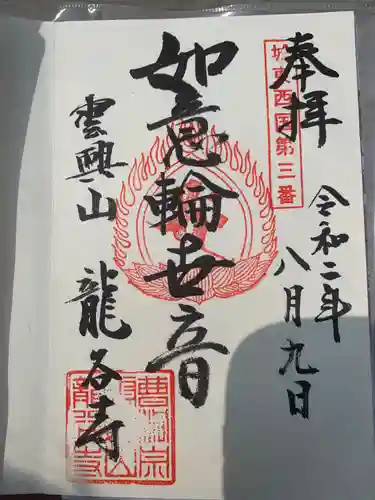 奉拝
坂東西国第三番
令和二年
八月九日
如意輪世音
雲興山 龍谷寺
曹洞宗